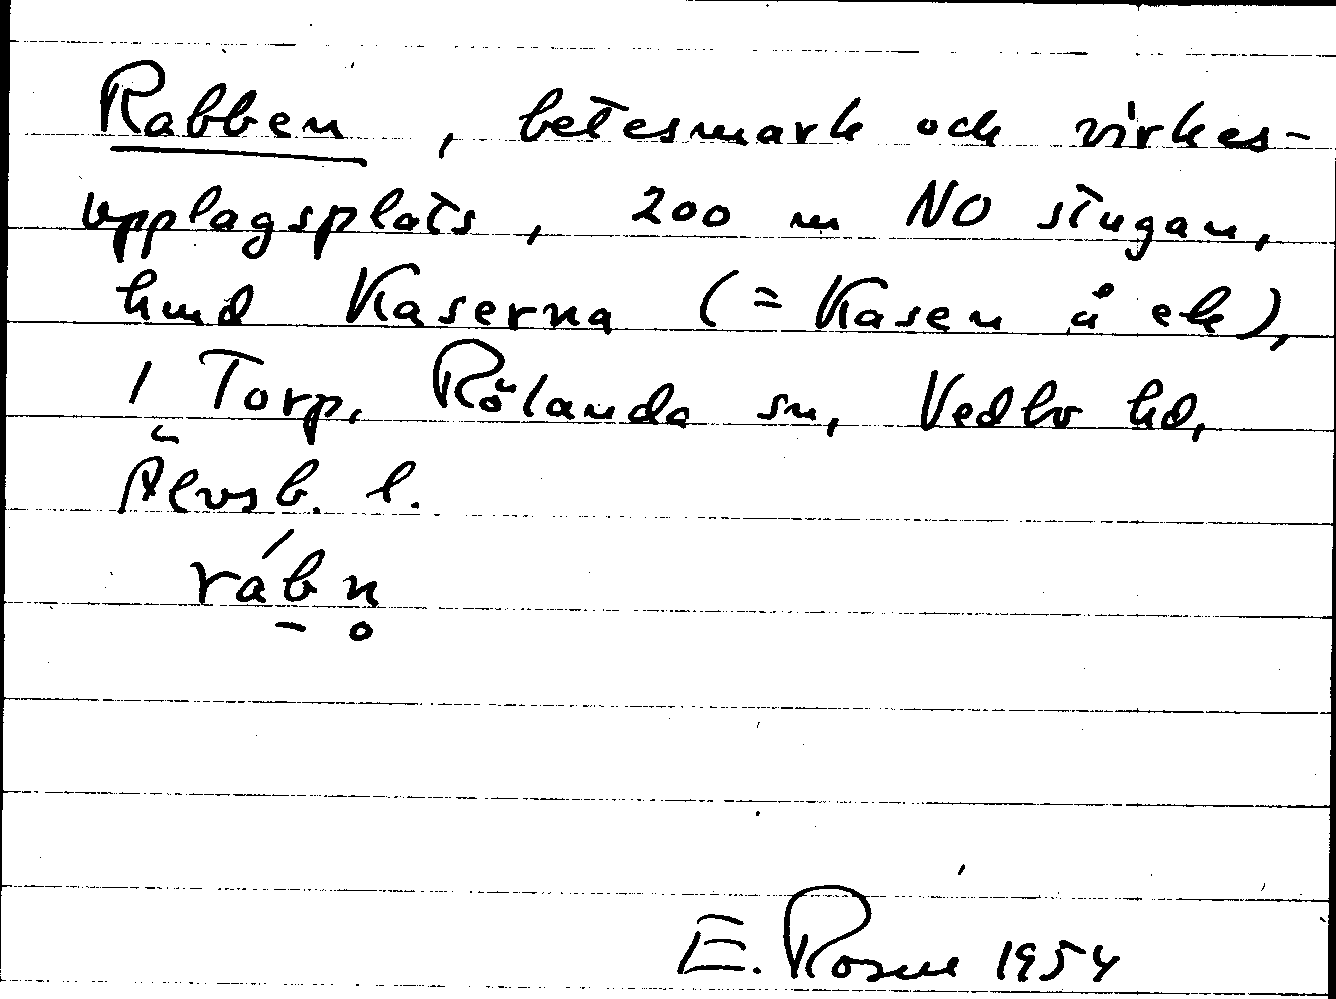 Rabben, betesmark och virkes-
upplagsplats, 200 m NO stugan,
hmd Kaserna (= Kasen å ek),
1 Torp, Rölanda sn, Vedbo hd,
Älvsb. l.
rábn̥
E. Rosell 1954